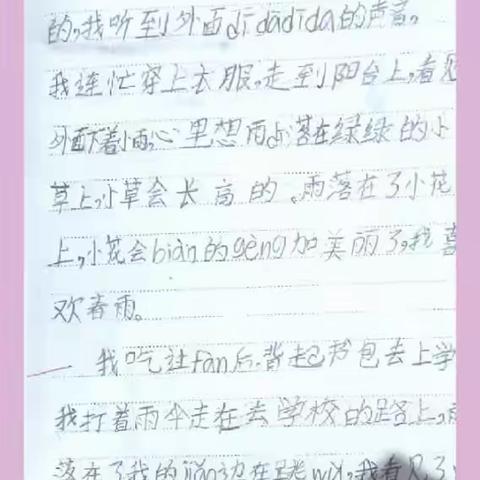 的,我听到外面dī dādīda的声音。
我连忙穿上衣服,走到阳台上,看见
外面下着小雨,心里想雨点落在绿绿的小
草上,小草会长高的。雨落在了小花
上,小花会biàn的gèng加美丽了,我喜
欢春雨。
我吃过fàn后,背起书包去上学
我打着雨伞走在去学校的路上,雨
落在了我的 边在 我看见了